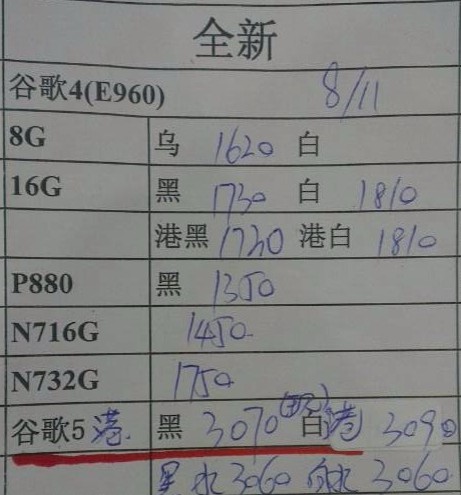 全新
谷歌4(E960) 8/11
8G 乌 1620 白
16G 黑 1730 白 1810
港黑 1730 港白 1810
P880 黑 1350
N716G 1450
N732G 1750
谷歌5 港 黑 3070 白港 3090
黑水 3060 白水 3060